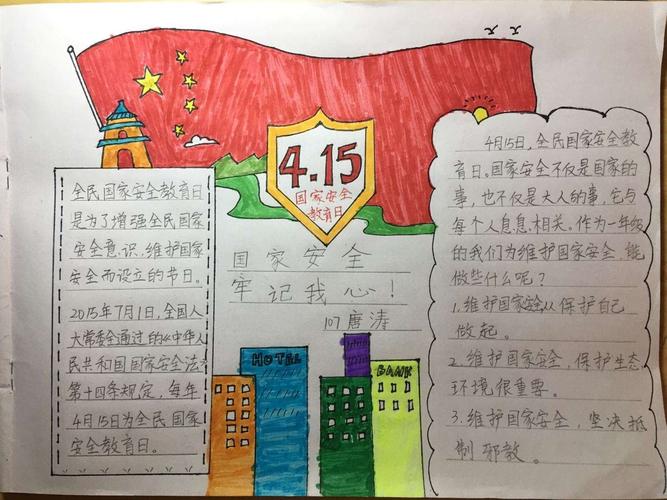 4.15
国家安全
教育日
全民国家安全教育日
是为了增强全民国家
安全意识,维护国家
安全而设立的节日。
2015年7月1日,全国人
大常委会通过的《中华人
民共和国国家安全法》
第十四条规定,每年
4月15日为全民国家
安全教育日。
国家安全
牢记我心!
107唐涛
HOTEL
BANK
4月15日,全民国家安全教
育日。国家安全不仅是国家的
事,也不仅是大人的事,它与
每个人息息相关。作为一年级
的我们为维护国家安全,能
做些什么呢?
1.维护国家安全从保护自己
做起。
2.维护国家安全,保护生态
环境很重要。
3.维护国家安全,坚决抵
制邪教。